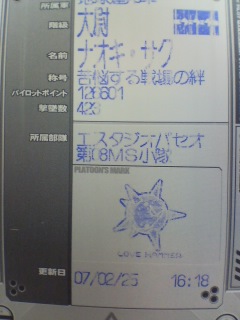 所属軍
階級
大尉
名前
ナオキ・サク
称号
苦悩する単眼の絆
パイロットポイント
126801
撃墜数
423
所属部隊
エスタジオパセオ
第08MS小隊
PLATOON'S MARK
LOVE HAMMER
更新日
07/02/25 16:18